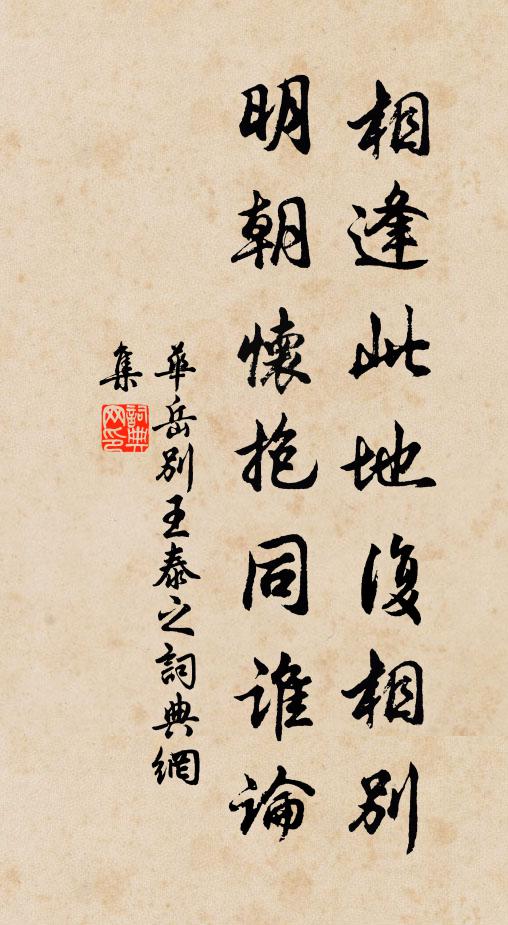 相逢此地復相別
明朝懷抱同誰論
華岳別王泰之詞典網
集
詞典网印